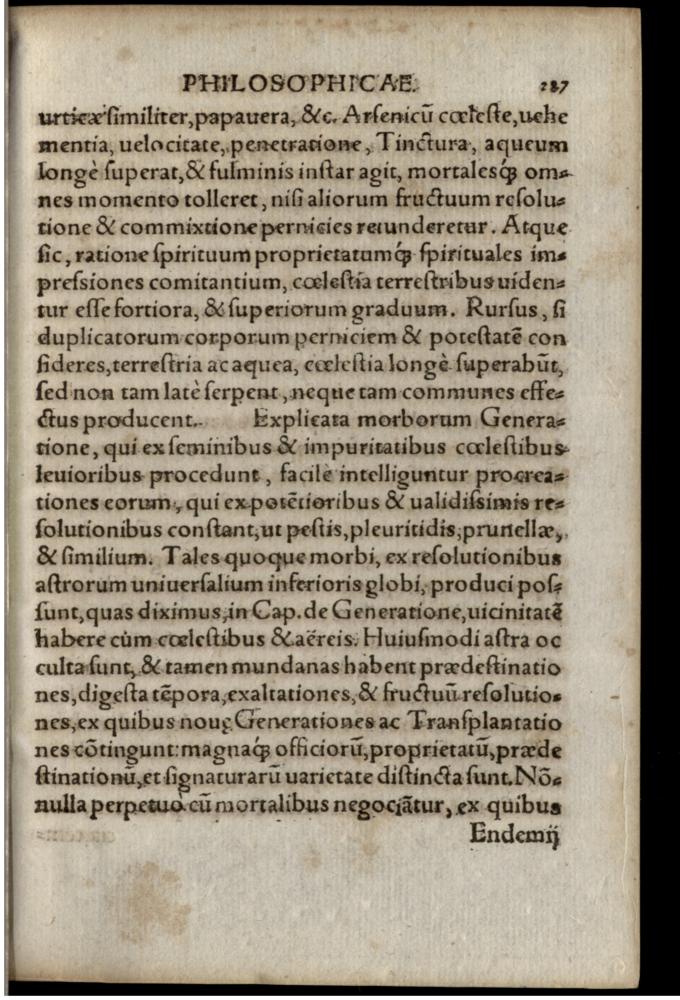 PHILOSOPHICAE. 187
urticæ similiter, papauera, &c. Arſenicū cœleſte, uehe
mentia, uelocitate, penetratione, Tinctura, aqueum
longè ſuperat, & fulminis inſtar agit, mortalesq́ꝫ om⸗
nes momento tolleret, niſi aliorum fructuum reſolu⸗
tione & commixtione pernicies retunderetur. Atque
ſic, ratione ſpirituum proprietatumq́ꝫ ſpirituales im⸗
preſsiones comitantium, cœleſtia terreſtribus uiden⸗
tur eſſe fortiora, & ſuperiorum graduum. Rurſus, ſi
duplicatorum corporum perniciem & poteſtatē con
ſideres, terreſtria ac aquea, cœleſtia longè ſuperabūt,
ſed non tam latè ſerpent, neque tam communes effe⸗
ctus producent. Explicata morborum Genera⸗
tione, qui ex ſeminibus & impuritatibus cœleſtibus
leuioribus procedunt, facilè intelliguntur procrea⸗
tiones eorum, qui ex potētioribus & ualidiſsimis re⸗
ſolutionibus conſtant, ut peſtis, pleuritidis, prunellæ,
& ſimilium. Tales quoque morbi, ex reſolutionibus
aſtrorum uniuerſalium inferioris globi, produci poſ⸗
ſunt, quas diximus, in Cap. de Generatione, uicinitatē
habere cùm cœleſtibus & aëreis. Huiuſmodi aſtra oc
culta ſunt, & tamen mundanas habent prædeſtinatio
nes, digeſta tēpora, exaltationes, & fructuū reſolutio⸗
nes, ex quibus nouę Generationes ac Tranſplantatio
nes cōtingunt: magnaq́ꝫ officiorū, proprietatū, præde
ſtinationū, et ſignaturarū uarietate diſtincta ſunt. Nō⸗
nulla perpetuò cū mortalibus negociātur, ex quibus
Endemij